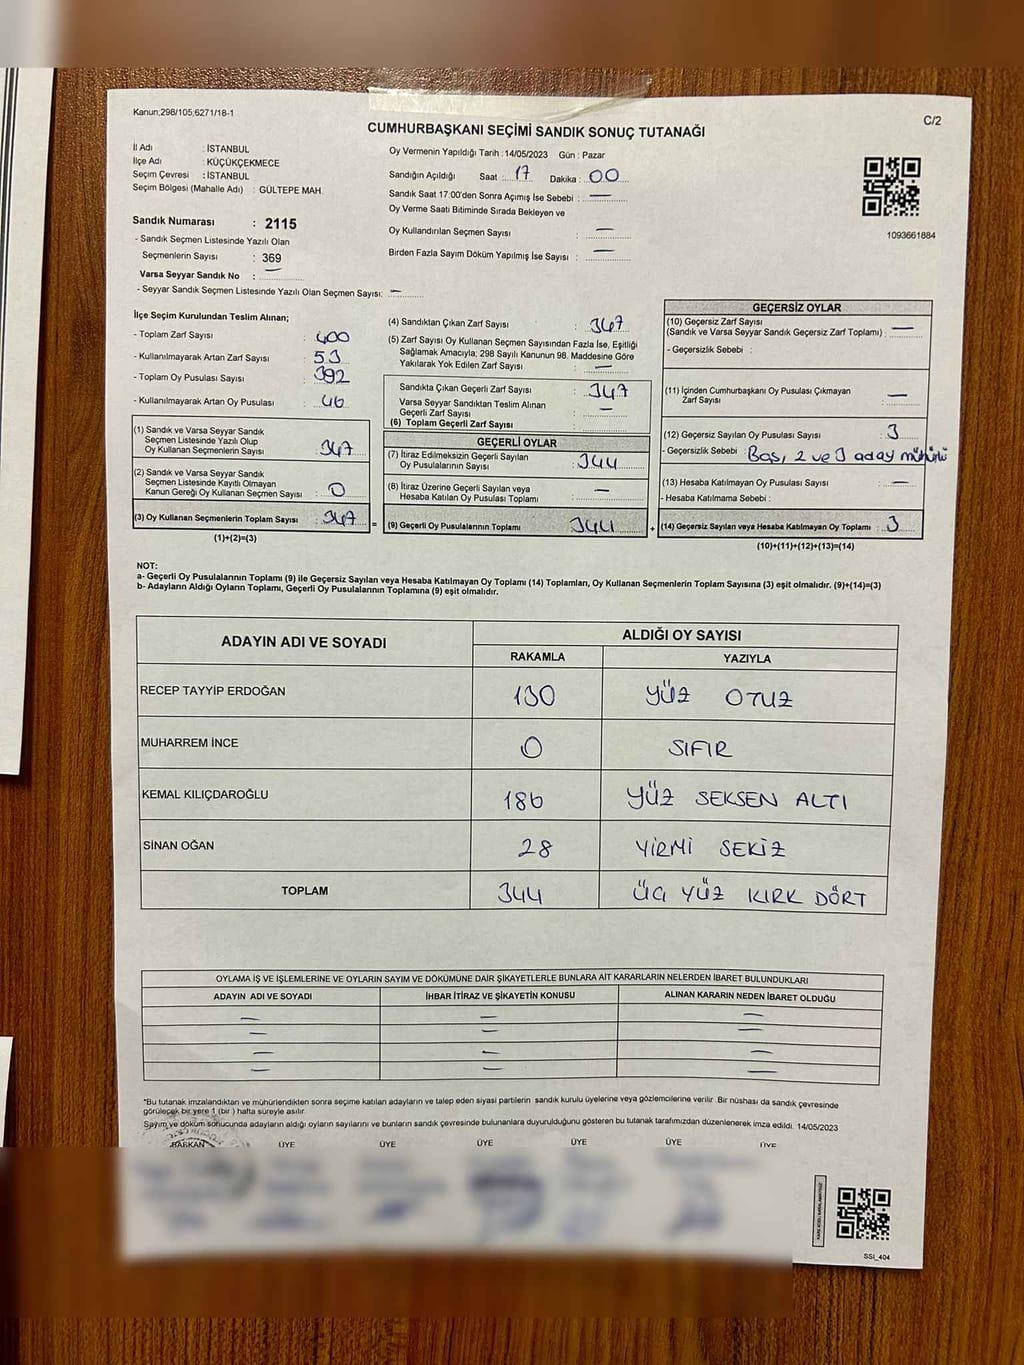 Kanun;298/105;6271/18-1
C/2
CUMHURBAŞKANI SEÇİMİ SANDIK SONUÇ TUTANAĞI
İl Adı : İSTANBUL
İlçe Adı : KÜÇÜKÇEKMECE
Seçim Çevresi : İSTANBUL
Seçim Bölgesi (Mahalle Adı) : GÜLTEPE MAH.
Sandık Numarası : 2115
- Sandık Seçmen Listesinde Yazılı Olan
Seçmenlerin Sayısı : 369
Varsa Seyyar Sandık No : —
- Seyyar Sandık Seçmen Listesinde Yazılı Olan Seçmen Sayısı: —
Oy Vermenin Yapıldığı Tarih : 14/05/2023 Gün : Pazar
Sandığın Açıldığı Saat : 17 Dakika : 00
Sandık Saat 17:00'den Sonra Açımış İse Sebebi : —
Oy Verme Saati Bitiminde Sırada Bekleyen ve
Oy Kullandırılan Seçmen Sayısı : —
Birden Fazla Sayım Döküm Yapılmış İse Sayısı : —
1093661884
İlçe Seçim Kurulundan Teslim Alınan;
- Toplam Zarf Sayısı : 400
- Kullanılmayarak Artan Zarf Sayısı : 53
- Toplam Oy Pusulası Sayısı : 392
- Kullanılmayarak Artan Oy Pusulası : 46
(1) Sandık ve Varsa Seyyar Sandık
Seçmen Listesinde Yazılı Olup
Oy Kullanan Seçmenlerin Sayısı : 347
(2) Sandık ve Varsa Seyyar Sandık
Seçmen Listesinde Kayıtlı Olmayan
Kanun Gereği Oy Kullanan Seçmen Sayısı : 0
(3) Oy Kullanan Seçmenlerin Toplam Sayısı : 347 =
(1)+(2)=(3)
(4) Sandıktan Çıkan Zarf Sayısı : 347
(5) Zarf Sayısı Oy Kullanan Seçmen Sayısından Fazla İse, Eşitliği
Sağlamak Amacıyla; 298 Sayılı Kanunun 98. Maddesine Göre
Yakılarak Yok Edilen Zarf Sayısı : —
Sandıkta Çıkan Geçerli Zarf Sayısı : 347
Varsa Seyyar Sandıktan Teslim Alınan
Geçerli Zarf Sayısı : —
(6) Toplam Geçerli Zarf Sayısı :
GEÇERLİ OYLAR
(7) İtiraz Edilmeksizin Geçerli Sayılan
Oy Pusulalarının Sayısı : 344
(8) İtiraz Üzerine Geçerli Sayılan veya
Hesaba Katılan Oy Pusulası Toplamı : —
(9) Geçerli Oy Pusulalarının Toplamı 344 +
GEÇERSİZ OYLAR
(10) Geçersiz Zarf Sayısı
(Sandık ve Varsa Seyyar Sandık Geçersiz Zarf Toplamı) : —
- Geçersizlik Sebebi :
(11) İçinden Cumhurbaşkanı Oy Pusulası Çıkmayan
Zarf Sayısı : —
(12) Geçersiz Sayılan Oy Pusulası Sayısı : 3
- Geçersizlik Sebebi : Boş, 2 ve 3 aday mühürlü
(13) Hesaba Katılmayan Oy Pusulası Sayısı : —
- Hesaba Katılmama Sebebi :
(14) Geçersiz Sayılan veya Hesaba Katılmayan Oy Toplamı : 3
(10)+(11)+(12)+(13)=(14)
NOT:
a- Geçerli Oy Pusulalarının Toplamı (9) ile Geçersiz Sayılan veya Hesaba Katılmayan Oy Toplamı (14) Toplamları, Oy Kullanan Seçmenlerin Toplam Sayısına (3) eşit olmalıdır. (9)+(14)=(3)
b- Adayların Aldığı Oyların Toplamı, Geçerli Oy Pusulalarının Toplamına (9) eşit olmalıdır.
ADAYIN ADI VE SOYADI ALDIĞI OY SAYISI
RAKAMLA YAZIYLA
RECEP TAYYİP ERDOĞAN 130 YÜZ OTUZ
MUHARREM İNCE 0 SIFIR
KEMAL KILIÇDAROĞLU 186 YÜZ SEKSEN ALTI
SİNAN OĞAN 28 YİRMİ SEKİZ
TOPLAM 344 ÜÇ YÜZ KIRK DÖRT
OYLAMA İŞ VE İŞLEMLERİNE VE OYLARIN SAYIM VE DÖKÜMÜNE DAİR ŞİKAYETLERLE BUNLARA AİT KARARLARIN NELERDEN İBARET BULUNDUKLARI
ADAYIN ADI VE SOYADI İHBAR İTİRAZ VE ŞİKAYETİN KONUSU ALINAN KARARIN NEDEN İBARET OLDUĞU
— — —
— — —
— — —
— — —
*Bu tutanak imzalandıktan ve mühürlendikten sonra seçime katılan adayların ve talep eden siyasi partilerin sandık kurulu üyelerine veya gözlemcilerine verilir. Bir nüshası da sandık çevresinde
görülecek bir yere 1 (bir ) hafta süreyle asılır.
Sayım ve döküm sonucunda adayların aldığı oyların sayılarını ve bunların sandık çevresinde bulunanlara duyurulduğunu gösteren bu tutanak tarafımızdan düzenlenerek imza edildi. 14/05/2023
BAŞKAN ÜYE ÜYE ÜYE ÜYE ÜYE ÜYE
SSI_404